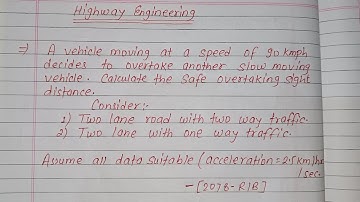 Highway Engineering
⇒ A vehicle moving at a speed of 90 kmph
decides to overtake another slow moving
vehicle. Calculate the safe overtaking sight
distance.
Consider:-
1) Two lane road with two way traffic.
2) Two lane with one way traffic.
Assume all data suitable (acceleration = 2.5 km/hr
/sec.
- [2076 - RIB]